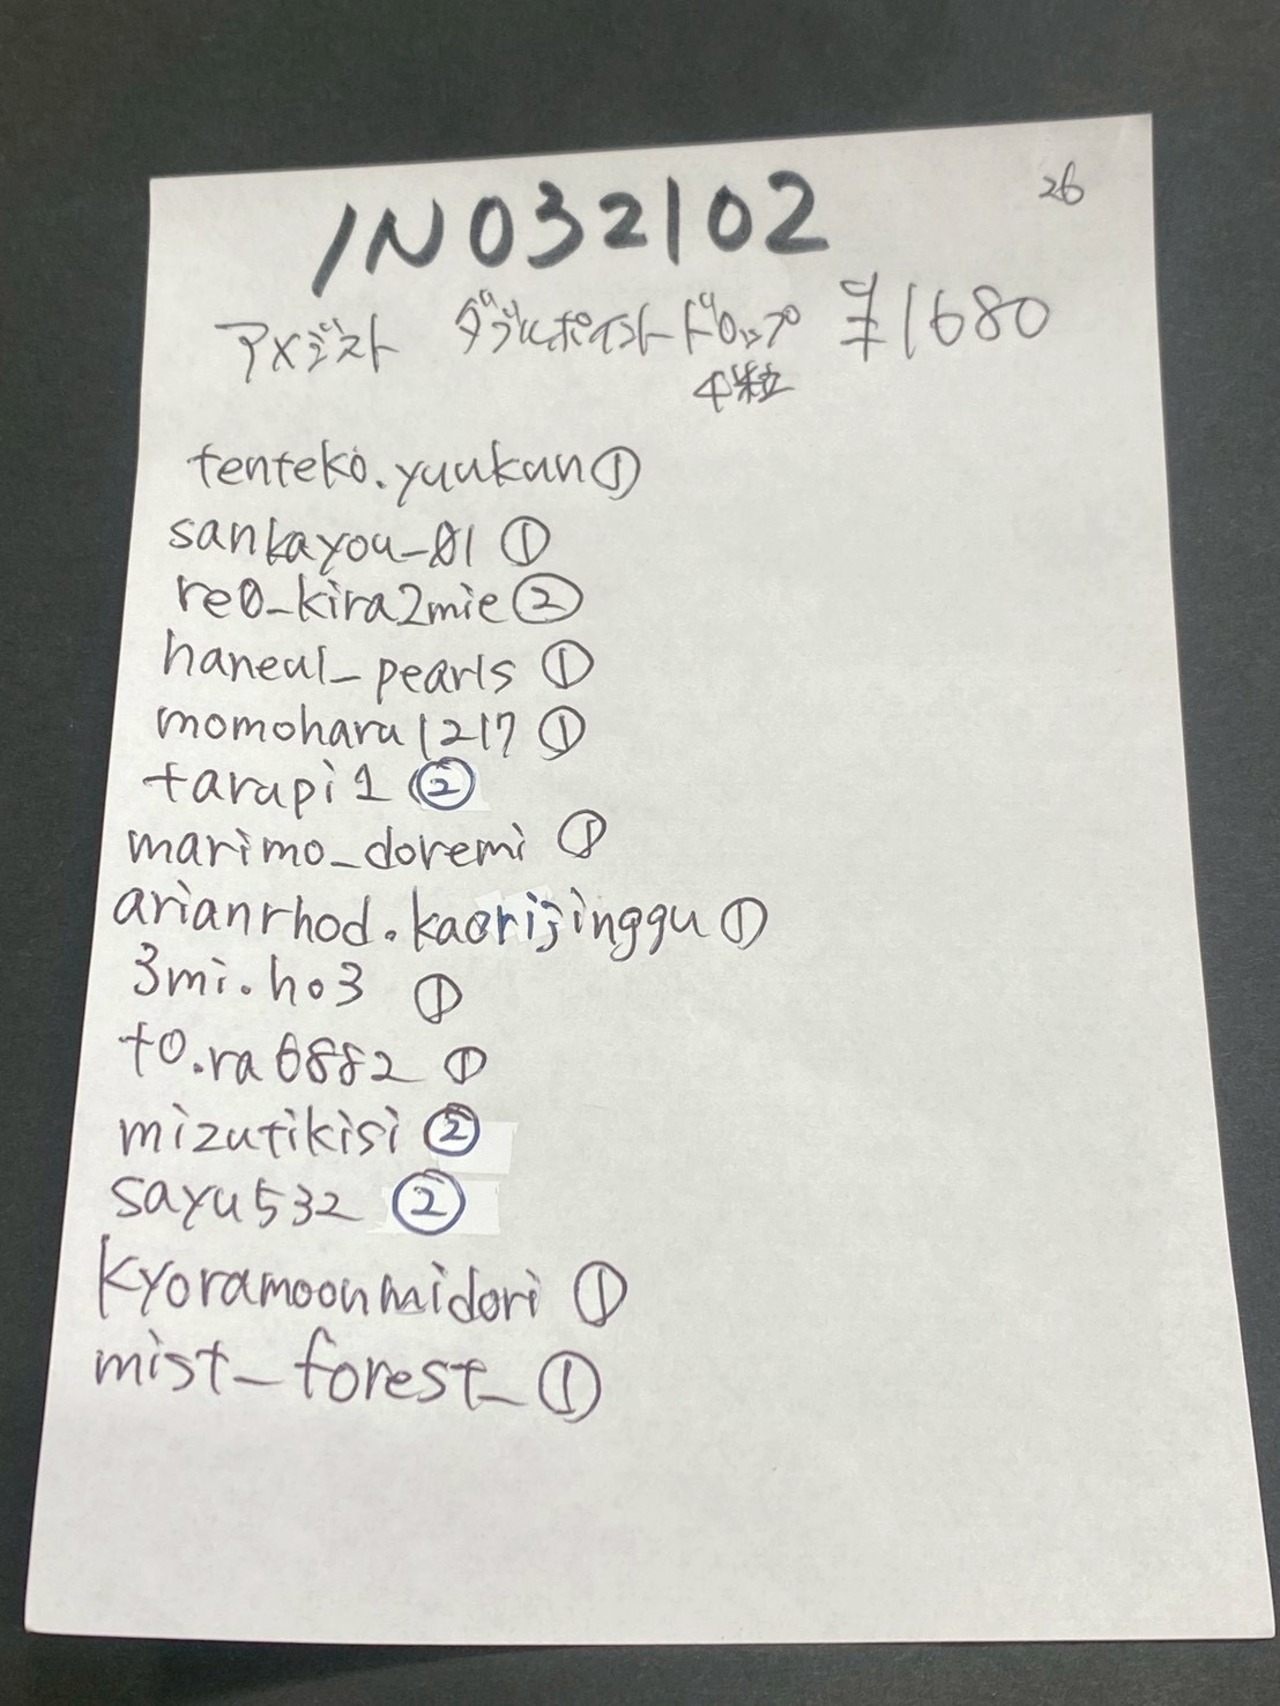 26
IN032102
アメジスト ダブルポイントドロップ ¥1680
4粒
tenteko.yuukan①
sankayou_01 ①
re0_kira2mie②
haneul_pearls ①
momoharu1217 ①
tarapi1 ②
marimo_doremi ①
arianrhod.kaorijinggu①
3mi.ho3 ①
to.ra6882 ①
mizutikisi ②
sayu532 ②
kyoramoonmidori ①
mist_forest_①